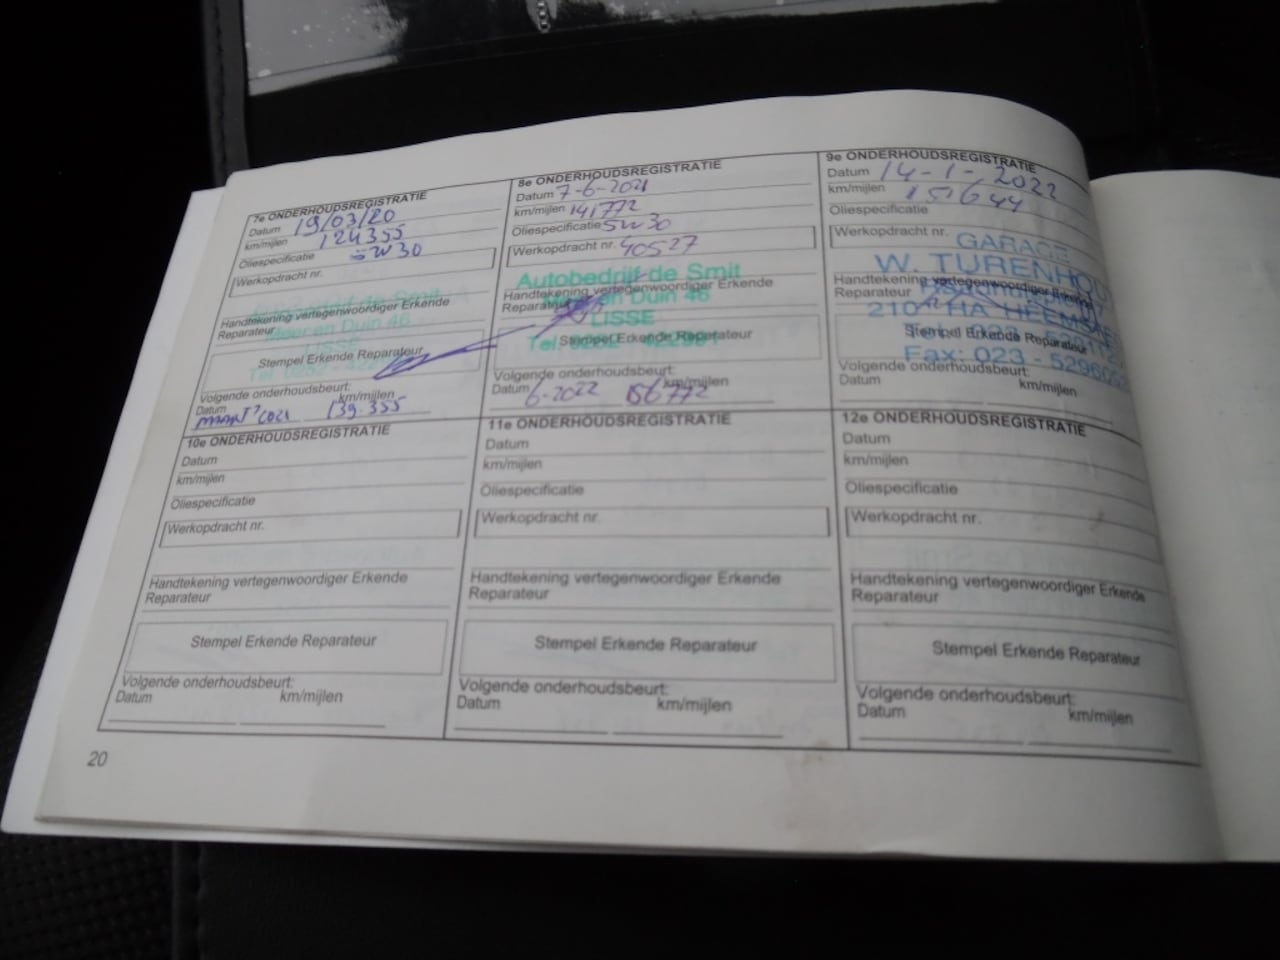 7e ONDERHOUDSREGISTRATIE
Datum 19/03/20
km/mijlen 124355
Oliespecificatie 5W30
Werkopdracht nr.
Handtekening vertegenwoordiger Erkende
Reparateur
Meer en Duin 46
LISSE
Stempel Erkende Reparateur
Tel. 0252 - 422
Volgende onderhoudsbeurt:
Datum km/mijlen
maart 2021 139.355
8e ONDERHOUDSREGISTRATIE
Datum 7-6-2021
km/mijlen 141772
Oliespecificatie 5W30
Werkopdracht nr. 40527
Autobedrijf de Smit
Handtekening vertegenwoordiger Erkende
Reparateur
Meer en Duin 46
LISSE
Stempel Erkende Reparateur
Tel. 0252
Volgende onderhoudsbeurt:
Datum km/mijlen
6-2022 156772
9e ONDERHOUDSREGISTRATIE
Datum 14-1-2022
km/mijlen 151644
Oliespecificatie
Werkopdracht nr.
GARAGE
W. TURENHOU
Handtekening vertegenwoordiger Erkende
Reparateur
210 HA HEEMS
Stempel Erkende Reparateur
Fax: 023 - 52960
Volgende onderhoudsbeurt:
Datum km/mijlen
10e ONDERHOUDSREGISTRATIE
Datum
km/mijlen
Oliespecificatie
Werkopdracht nr.
Handtekening vertegenwoordiger Erkende
Reparateur
Stempel Erkende Reparateur
Volgende onderhoudsbeurt:
Datum km/mijlen
11e ONDERHOUDSREGISTRATIE
Datum
km/mijlen
Oliespecificatie
Werkopdracht nr.
Handtekening vertegenwoordiger Erkende
Reparateur
Stempel Erkende Reparateur
Volgende onderhoudsbeurt:
Datum km/mijlen
12e ONDERHOUDSREGISTRATIE
Datum
km/mijlen
Oliespecificatie
Werkopdracht nr.
Handtekening vertegenwoordiger Erkende
Reparateur
Stempel Erkende Reparateur
Volgende onderhoudsbeurt:
Datum km/mijlen
20